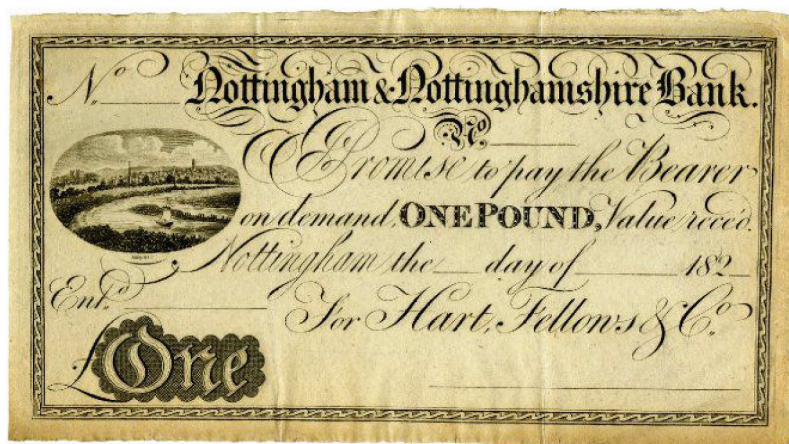 No. Nottingham & Nottinghamshire Bank.
No
I Promise to pay the Bearer
on demand, ONE POUND, Value reced.
Nottingham the day of 182
Entd.
For Hart, Fellows & Co.
£One